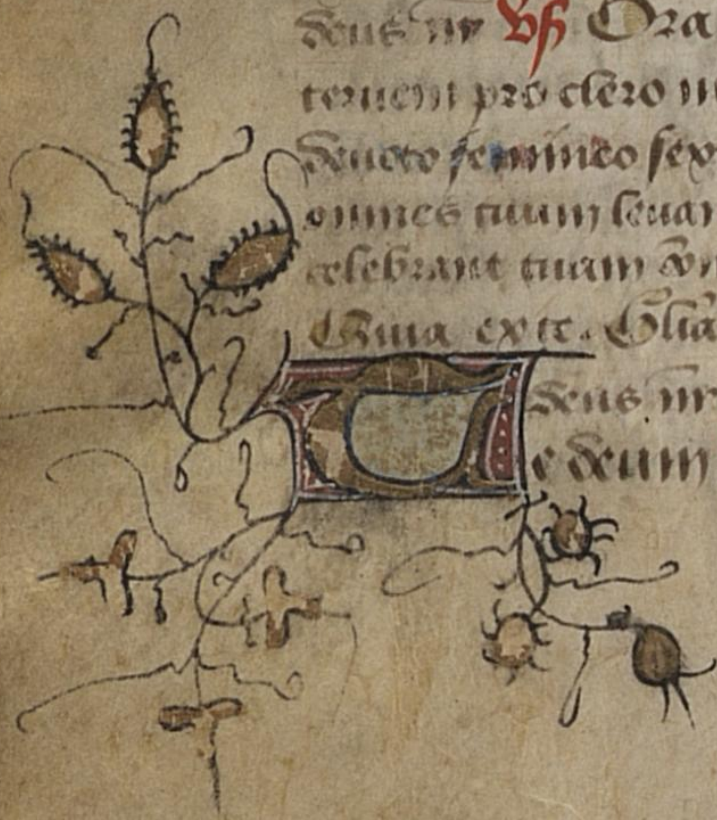 deus nr Vs Ora
teruem pro clero in
deuoto femineo sex
omnes tuum leuar
celebrant tuam
Quia ex te. Glia
T deus nr
e deum